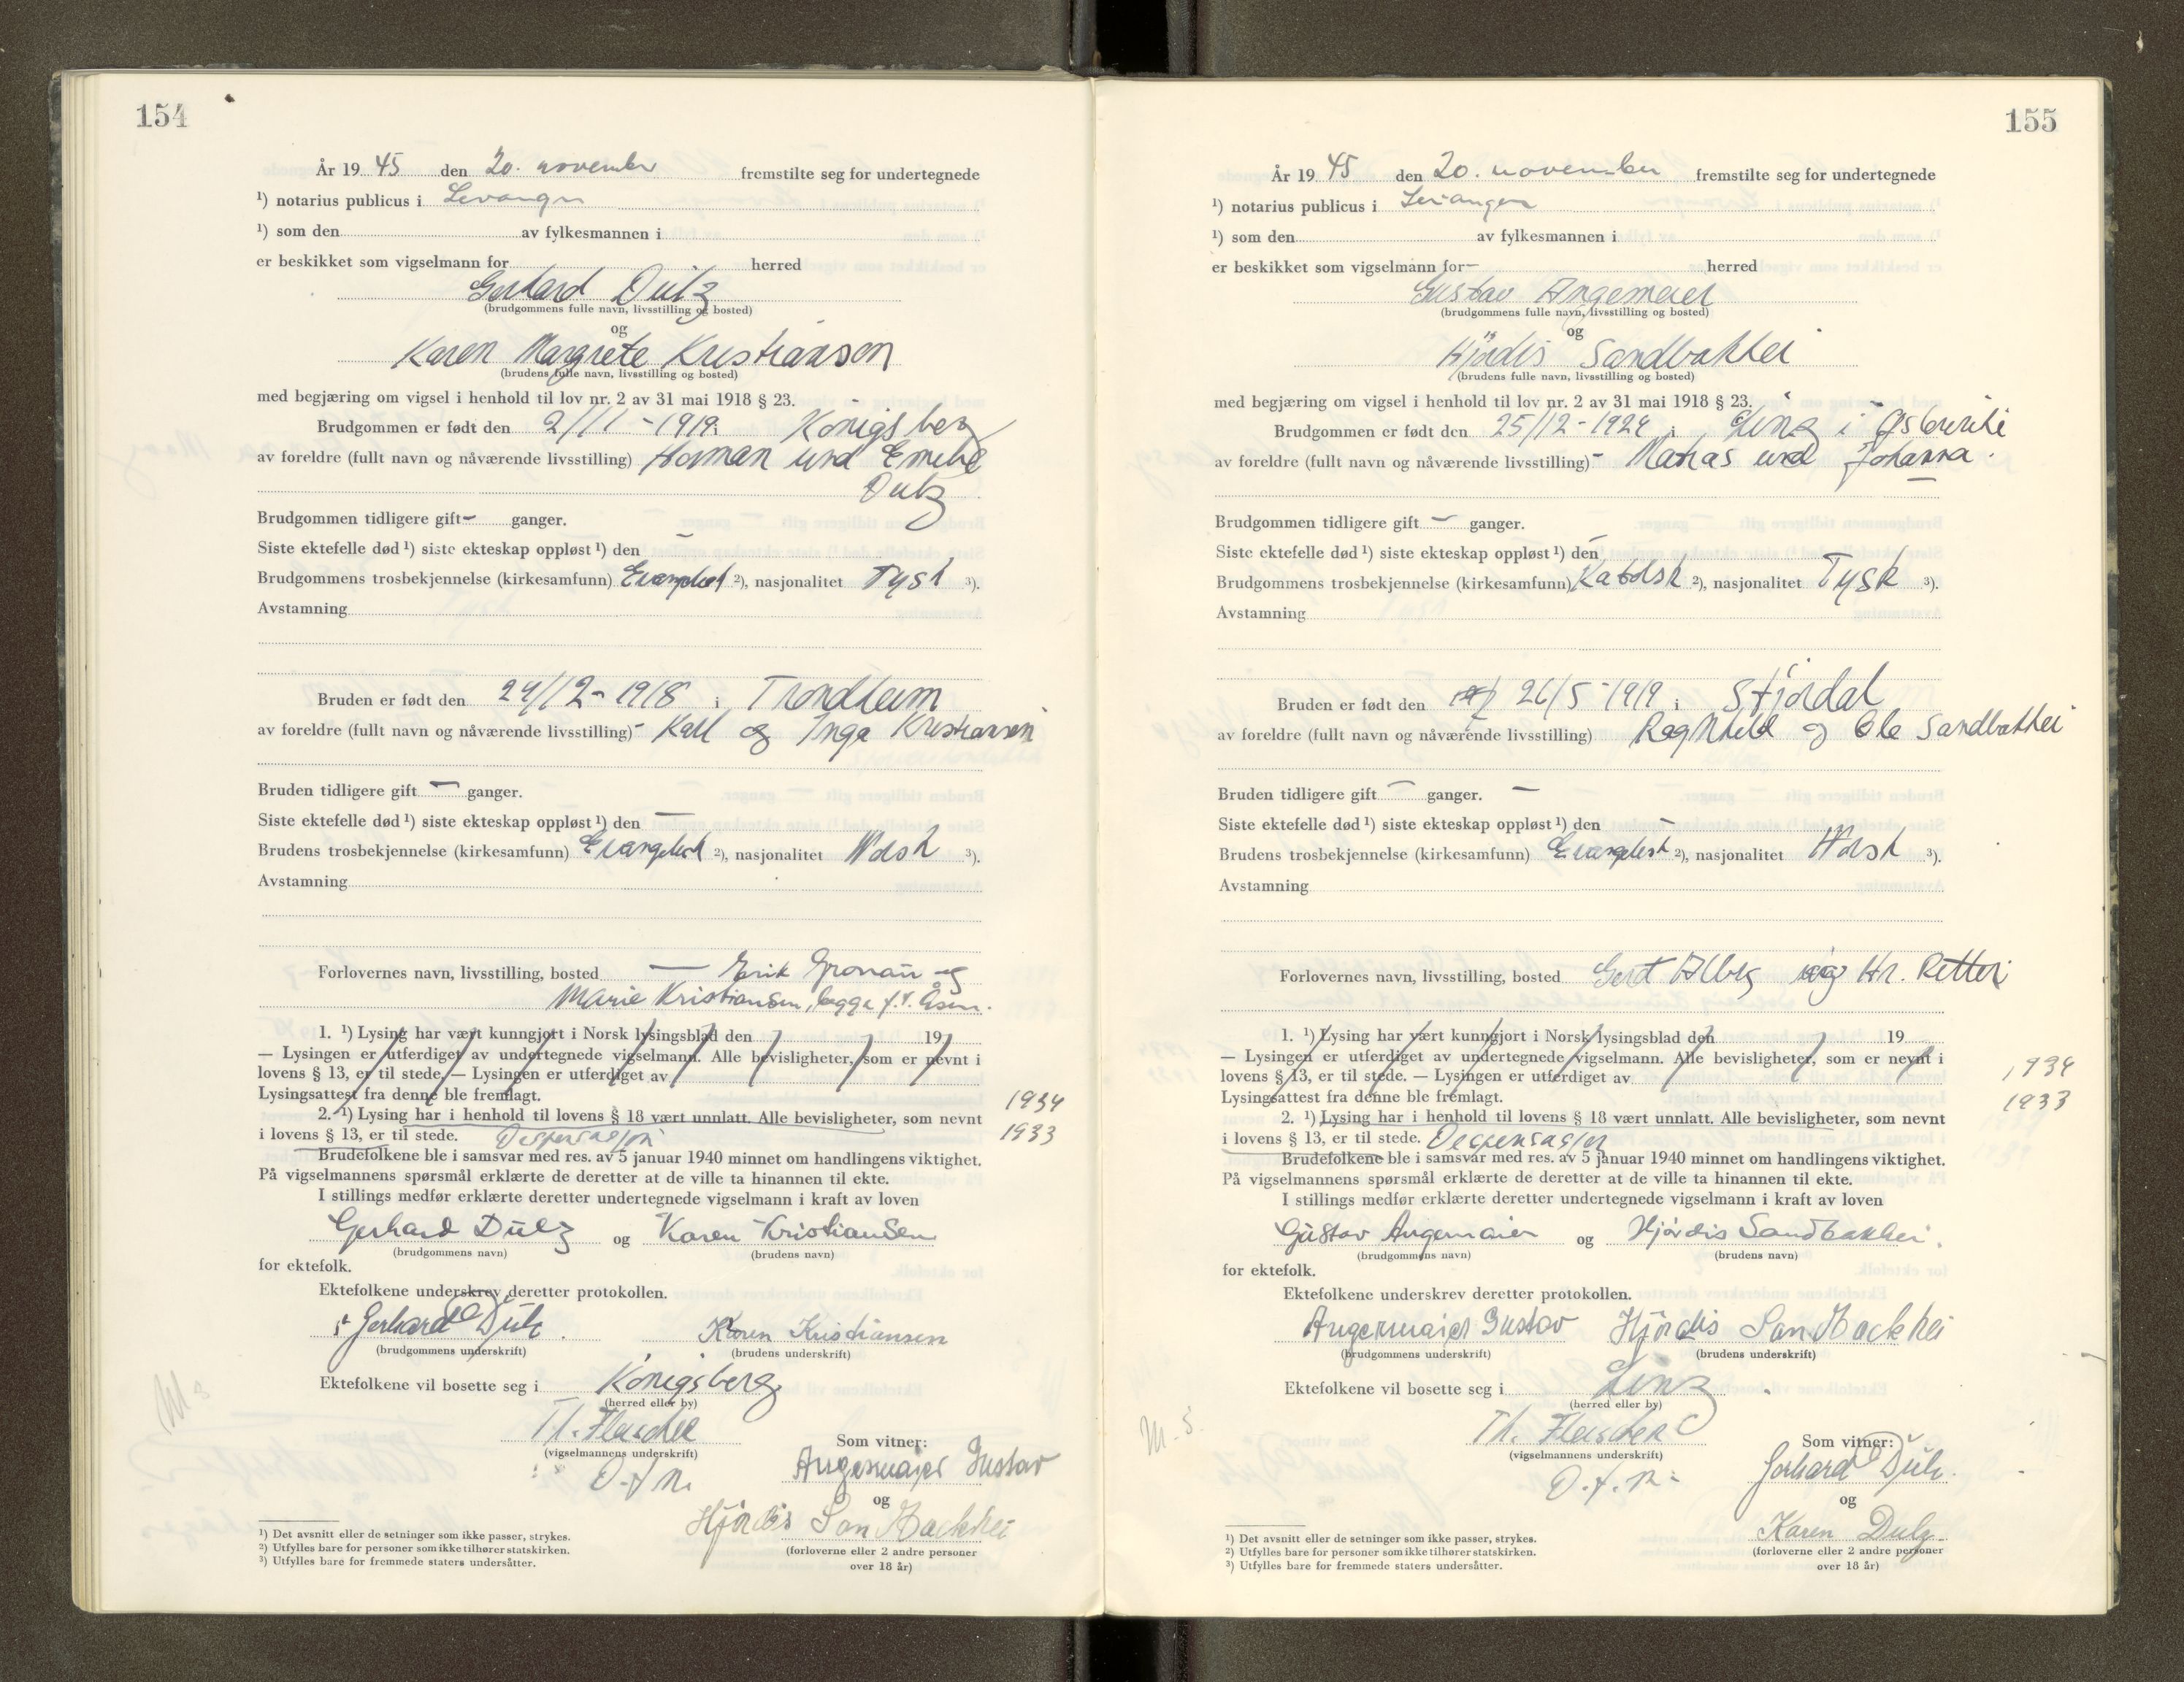 154
År 19 45 den 20. november fremstilte seg for undertegnede
¹) notarius publicus i Levanger
¹) som den av fylkesmannen i
er beskikket som vigselmann for herred
Gerhard Dulz
(brudgommens fulle navn, livsstilling og bosted)
og
Karen Margrete Kristiansen
(brudens fulle navn, livsstilling og bosted)
med begjæring om vigsel i henhold til lov nr. 2 av 31 mai 1918 § 23.
Brudgommen er født den 2/11 - 1919 i Königsberg
av foreldre (fullt navn og nåværende livsstilling) Herman und Emilie
Dulz
Brudgommen tidligere gift – ganger.
Siste ektefelle død ¹) siste ekteskap oppløst ¹) den –
Brudgommens trosbekjennelse (kirkesamfunn) Evangelisk ²), nasjonalitet Tysk ³).
Avstamning
Bruden er født den 24/12 - 1918 i Trondheim
av foreldre (fullt navn og nåværende livsstilling) - Karl og Inga Kristiansen
Bruden tidligere gift – ganger.
Siste ektefelle død ¹) siste ekteskap oppløst ¹) den –
Brudens trosbekjennelse (kirkesamfunn) Evangelisk ²), nasjonalitet Norsk ³).
Avstamning
Forlovernes navn, livsstilling, bosted — Erik Gronau og
Marie Kristiansen, begge f.t. Åsen.
1. ¹) Lysing har vært kunngjort i Norsk lysingsblad den 19
— Lysingen er utferdiget av undertegnede vigselmann. Alle bevisligheter, som er nevnt i
lovens § 13, er til stede. — Lysingen er utferdiget av
Lysingsattest fra denne ble fremlagt.
1934
2. ¹) Lysing har i henhold til lovens § 18 vært unnlatt. Alle bevisligheter, som nevnt
i lovens § 13, er til stede. Dispensasjon
1933
Brudefolkene ble i samsvar med res. av 5 januar 1940 minnet om handlingens viktighet.
På vigselmannens spørsmål erklærte de deretter at de ville ta hinannen til ekte.
I stillings medfør erklærte deretter undertegnede vigselmann i kraft av loven
Gerhard Dulz og Karen Kristiansen
(brudgommens navn) (brudens navn)
for ektefolk.
Ektefolkene underskrev deretter protokollen.
Gerhard Dulz. Karen Kristiansen
(brudgommens underskrift) (brudens underskrift)
Ektefolkene vil bosette seg i Königsberg
(herred eller by)
Th. Fleischer
(vigselmannens underskrift)
Som vitner:
Angermaier Gustav
og
Hjördis Sandbackhei
(forloverne eller 2 andre personer
over 18 år)
¹) Det avsnitt eller de setninger som ikke passer, strykes.
²) Utfylles bare for personer som ikke tilhører statskirken.
³) Utfylles bare for fremmede staters undersåtter.
155
År 19 45 den 20. november fremstilte seg for undertegnede
¹) notarius publicus i Levanger
¹) som den av fylkesmannen i
er beskikket som vigselmann for – herred
Gustav Angemeier
(brudgommens fulle navn, livsstilling og bosted)
og
Hjördis Sandbakkei
(brudens fulle navn, livsstilling og bosted)
med begjæring om vigsel i henhold til lov nr. 2 av 31 mai 1918 § 23.
Brudgommen er født den 25/12 - 1924 i Linz i
av foreldre (fullt navn og nåværende livsstilling) - Matias und Johanna.
Brudgommen tidligere gift – ganger.
Siste ektefelle død ¹) siste ekteskap oppløst ¹) den –
Brudgommens trosbekjennelse (kirkesamfunn) Katolsk ²), nasjonalitet Tysk ³).
Avstamning
Bruden er født den 26/5 - 1919 i Stjördal
av foreldre (fullt navn og nåværende livsstilling) Ragnhild og Ole Sandbakkei
Bruden tidligere gift – ganger. –
Siste ektefelle død ¹) siste ekteskap oppløst ¹) den –
Brudens trosbekjennelse (kirkesamfunn) Evangelisk ²), nasjonalitet Norsk ³).
Avstamning
Forlovernes navn, livsstilling, bosted Gert og Hr. Retter
1. ¹) Lysing har vært kunngjort i Norsk lysingsblad den 19
— Lysingen er utferdiget av undertegnede vigselmann. Alle bevisligheter, som er nevnt i
lovens § 13, er til stede. — Lysingen er utferdiget av
1934
Lysingsattest fra denne ble fremlagt.
1933
2. ¹) Lysing har i henhold til lovens § 18 vært unnlatt. Alle bevisligheter, som nevnt
i lovens § 13, er til stede. Dispensasjon
Brudefolkene ble i samsvar med res. av 5 januar 1940 minnet om handlingens viktighet.
På vigselmannens spørsmål erklærte de deretter at de ville ta hinannen til ekte.
I stillings medfør erklærte deretter undertegnede vigselmann i kraft av loven
Gustav Angemaier og Hjördis Sandbakkei.
(brudgommens navn) (brudens navn)
for ektefolk.
Ektefolkene underskrev deretter protokollen.
Angermaier Gustav Hjördis Sandbackhei
(brudgommens underskrift) (brudens underskrift)
Ektefolkene vil bosette seg i Linz
(herred eller by)
Th. Fleischer
(vigselmannens underskrift)
Som vitner:
Gerhard Dulz.
og
Karen Dulz
(forloverne eller 2 andre personer
over 18 år)
¹) Det avsnitt eller de setninger som ikke passer, strykes.
²) Utfylles bare for personer som ikke tilhører statskirken.
³) Utfylles bare for fremmede staters undersåtter.